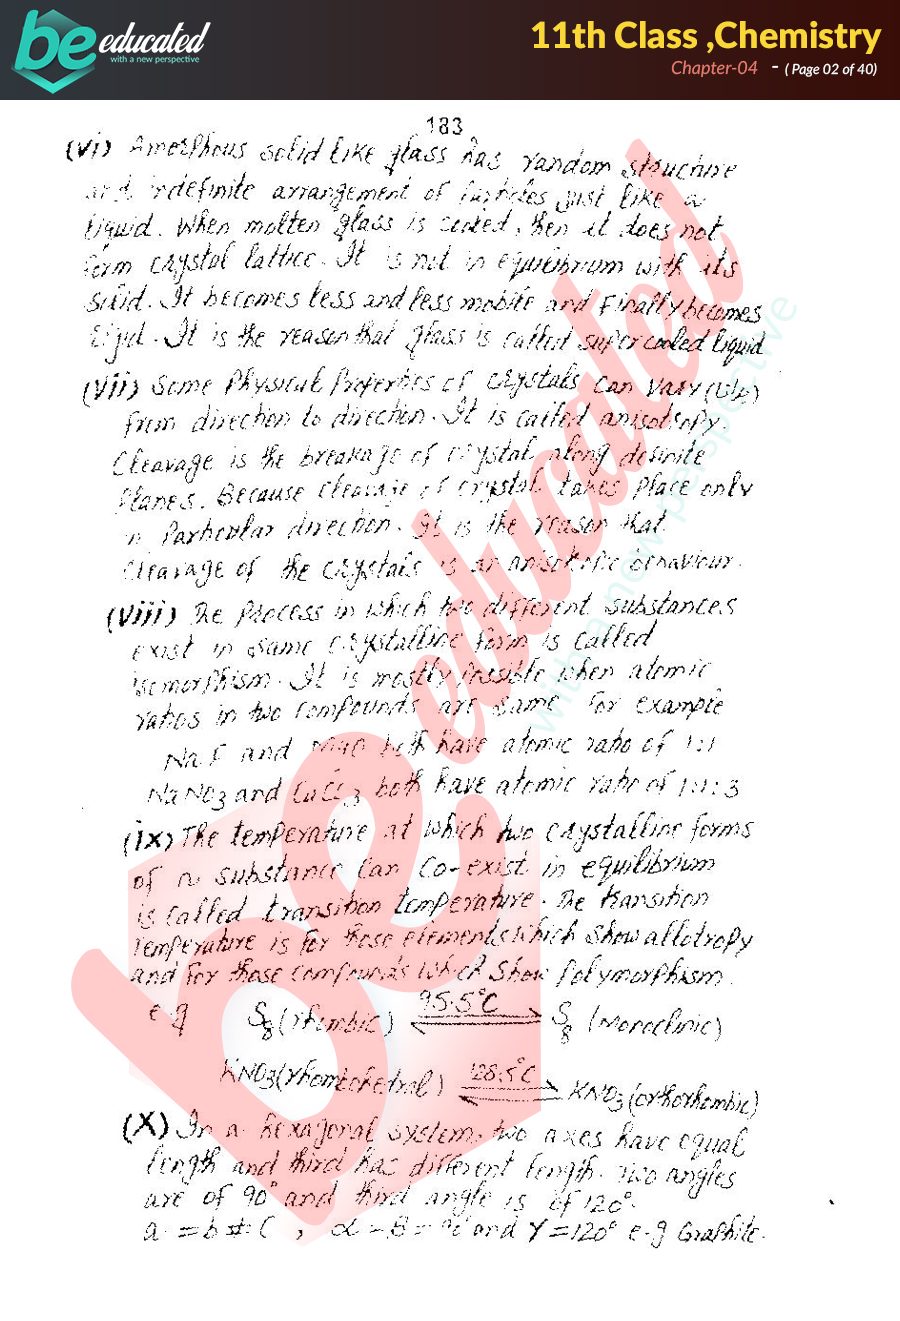 be educated
with a new perspective
11th Class ,Chemistry
Chapter-04 - ( Page 02 of 40)
183
(vi) Amorphous solid like glass has random structure
and indefinite arrangement of particles just like a
liquid. When molten glass is cooled, then it does not
form crystal lattice. It is not in equilibrium with its
solid. It becomes less and less mobile and finally becomes
rigid. It is the reason that glass is called super cooled liquid
(vii) Some Physical Properties of crystals can vary
from direction to direction. It is called anisotropy.
Cleavage is the breakage of crystal along definite
planes. Because cleavage of crystal takes place only
in Particular direction. It is the reason that
cleavage of the crystals is an anisotropic behaviour.
(viii) The Process in which two different substances
exist in same crystalline form is called
isomorphism. It is mostly possible when atomic
ratios in two compounds are same for example
NaF and MgO both have atomic ratio of 1:1
NaNO3 and both have atomic ratio of 1:1:3
(ix) The temperature at which two crystalline forms
of a substance can co-exist in equilibrium
is called transition temperature. The transition
temperature is for those elements which show allotropy
and for those compounds which show polymorphism.
e.g S8 (rhombic) 95.5°C ⇌ S8 (Monoclinic)
KNO3 (rhombohedral) 128.5°C ⇌ KNO3 (orthorhombic)
(X) In a hexagonal system, two axes have equal
length and third has different length. Two angles
are of 90° and third angle is of 120°.
a = b ≠ C , α = β = 90 and γ = 120° e.g Graphite.
be educated
with a new perspective